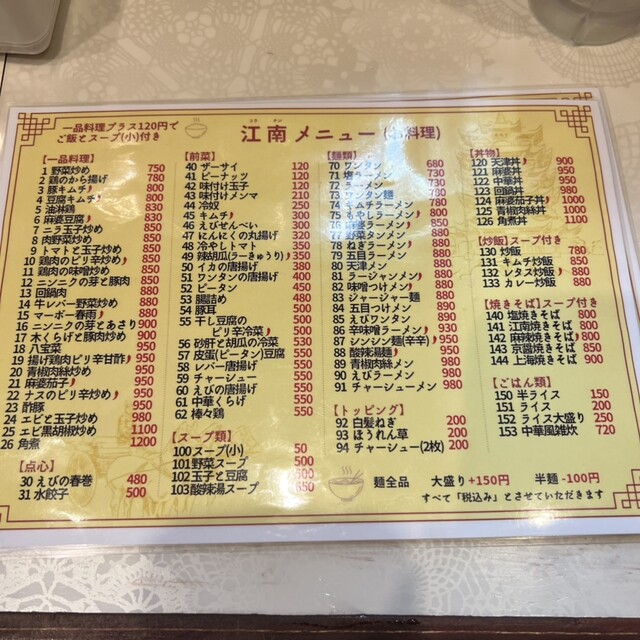 一品料理プラス120円で
ご飯とスープ(小)付き
江南メニュー
料理)
【一品料理】
1 野菜炒め 750
2 鶏のから揚げ 780
3 豚キムチ 800
4 豆腐キムチ 800
5 油淋鶏 830
6 麻婆豆腐 830
7 ニラ玉子炒め
8 肉野菜炒め 850
9 トマトと玉子炒め
10 鶏肉のピリ辛炒め
11 鶏肉の味噌炒め
12 ニンニクの芽と豚肉
13 回鍋肉 880
14 牛レバー野菜炒め 880
15 マーボー春雨
16 ニンニクの芽とあさり 900
17 木くらげと豚肉炒め
18 八宝菜 950
19 揚げ鶏肉ピリ辛甘酢 950
20 青椒肉絲炒め 950
21 麻婆茄子 950
22 ナスのピリ辛炒め 950
23 酢豚 950
24 エビと玉子炒め 980
25 エビ黒胡椒炒め 1100
26 角煮 1200
【点心】
30 えびの春巻 480
31 水餃子 500
【前菜】
40 ザーサイ
41 ピーナッツ
42 味付け玉子
43 味付けメンマ
44 冷奴
45 キムチ 300
46 えびせんべい 300
47 にんにくの丸揚げ
48 冷やしトマト 350
49 辣胡瓜(ラーきゅうり) 350
50 イカの唐揚げ
51 ワンタンの唐揚げ
52 ピータン 450
53 腸詰め 480
54 豚耳 500
55 干し豆腐の
ピリ辛冷菜 500
56 砂肝と胡瓜の冷菜
57 皮蛋(ピータン)豆腐
58 レバー唐揚げ 550
59 チャーシュー 550
60 えびの唐揚げ
61 中華くらげ
62 棒々鶏 650
【スープ類】
100 スープ(小) 50
101 野菜スープ 500
102 玉子と豆腐 500
103 酸辣湯スープ 650
【麺類】
70 ワンタン 680
71 塩ラーメン 730
72 ラーメン 730
73 ワンタン麺
74 キムチラーメン
75 もやしラーメン
76 麻婆ラーメン
77 野菜タンメン
78 ねぎラーメン
79 五目ラーメン
80 天津メン
81 ラージャンメン
82 味噌つけメン
83 ジャージャー麺
84 五目つけメン
85 えびワンタン
86 辛味噌ラーメン 880
87 シンシン麺(辛辛) 950
88 酸辣湯麺 950
89 青椒肉絲メン 950
90 えびラーメン 980
91 チャーシューメン 980
【トッピング】
92 白髪ねぎ 200
93 ほうれん草 200
94 チャーシュー(2枚) 200
【丼物】
120 天津丼 900
121 麻婆丼
122 中華丼 950
123 回鍋丼 980
124 麻婆茄子丼 1000
125 青椒肉絲丼 1000
126 角煮丼 1100
【炒飯】スープ付き
130 炒飯 780
131 キムチ炒飯 830
132 レタス炒飯 880
133 カレー炒飯 880
【焼きそば】スープ付き
140 塩焼きそば 800
141 江南焼きそば 850
142 麻辣焼きそば 880
143 京醤焼きそば 880
144 上海焼きそば 880
【ごはん類】
150 半ライス 150
151 ライス 200
152 ライス大盛り 250
153 中華風雑炊 720
麺全品 大盛り+150円 半麺 -100円
すべて「税込み」とさせていただきます